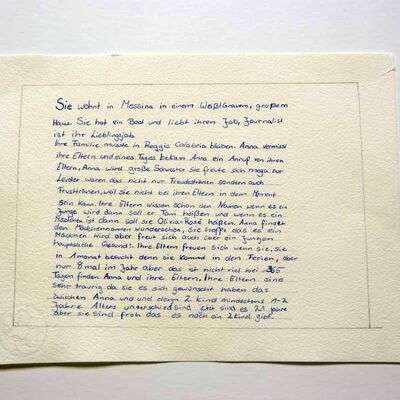 Sie wohnt in Messina in einem Weiß/Grauem, großem
Haus. Sie hat ein Boot und liebt ihrem Job, Journalist
ist ihr Lieblingsjob.
Ihre Familie musste in Reggio Calabria bleiben. Anna vermisst
ihre Eltern und eines Tages bekam Anna ein Anruf von ihren
Eltern, Anna wird große Schwester sie freute sich mega. Nur
Leider waren das nicht nur Freudestränen sondern auch
Frusttränen, weil sie nicht bei ihren Eltern in dem Moment
sein kann. Ihre Eltern wissen schon den Namen wenn es ein
Junge wird dann soll er Tom heißen und wenn es ein
Mädchen ist dann soll sie Olivia-Rosé heißen. Anna findet
den Mädchennamen wunderschön, sie hofft das es ein
Mädchen wird aber freut sich auch über ein Jungen
hauptsache Gesund!. Ihre Eltern freuen sich wenn sie, sie
in Amonat besucht denn sie kommt in den Ferien, aber
nur 8 mal im Jahr aber das ist nicht viel bei 365
Tagen finden Anna und ihre Eltern. Ihre Eltern sind
sehr traurig da sie es sich gewünscht haben das
zwischen Anna und und dem 2. Kind mindestens 1-2
Jahre Alters unterschied sind jetzt sind es 21 Jahre
aber sie sind froh das es noch ein 2 Kind gibt.